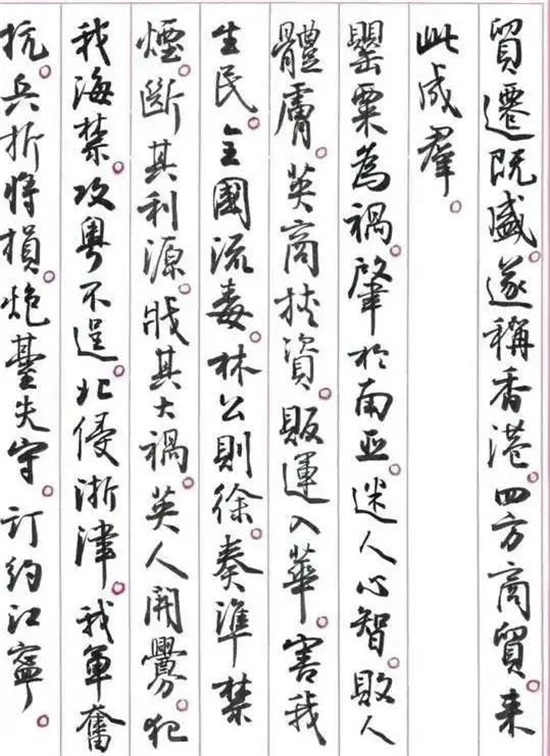 貿遷既盛。遂稱香港。四方商貿。来
此成羣。
罌粟為禍。肇於南亞。迷人心智。敗人
體膚。英商挾資。販運入華。害我
生民。全國流毒。林公則徐。奏準禁
煙。斷其利源。戕其大禍。英人開釁。犯
我海禁。攻粵不逞。北侵浙津。我軍奮
抗。兵折將損。炮臺失守。订约江寧。